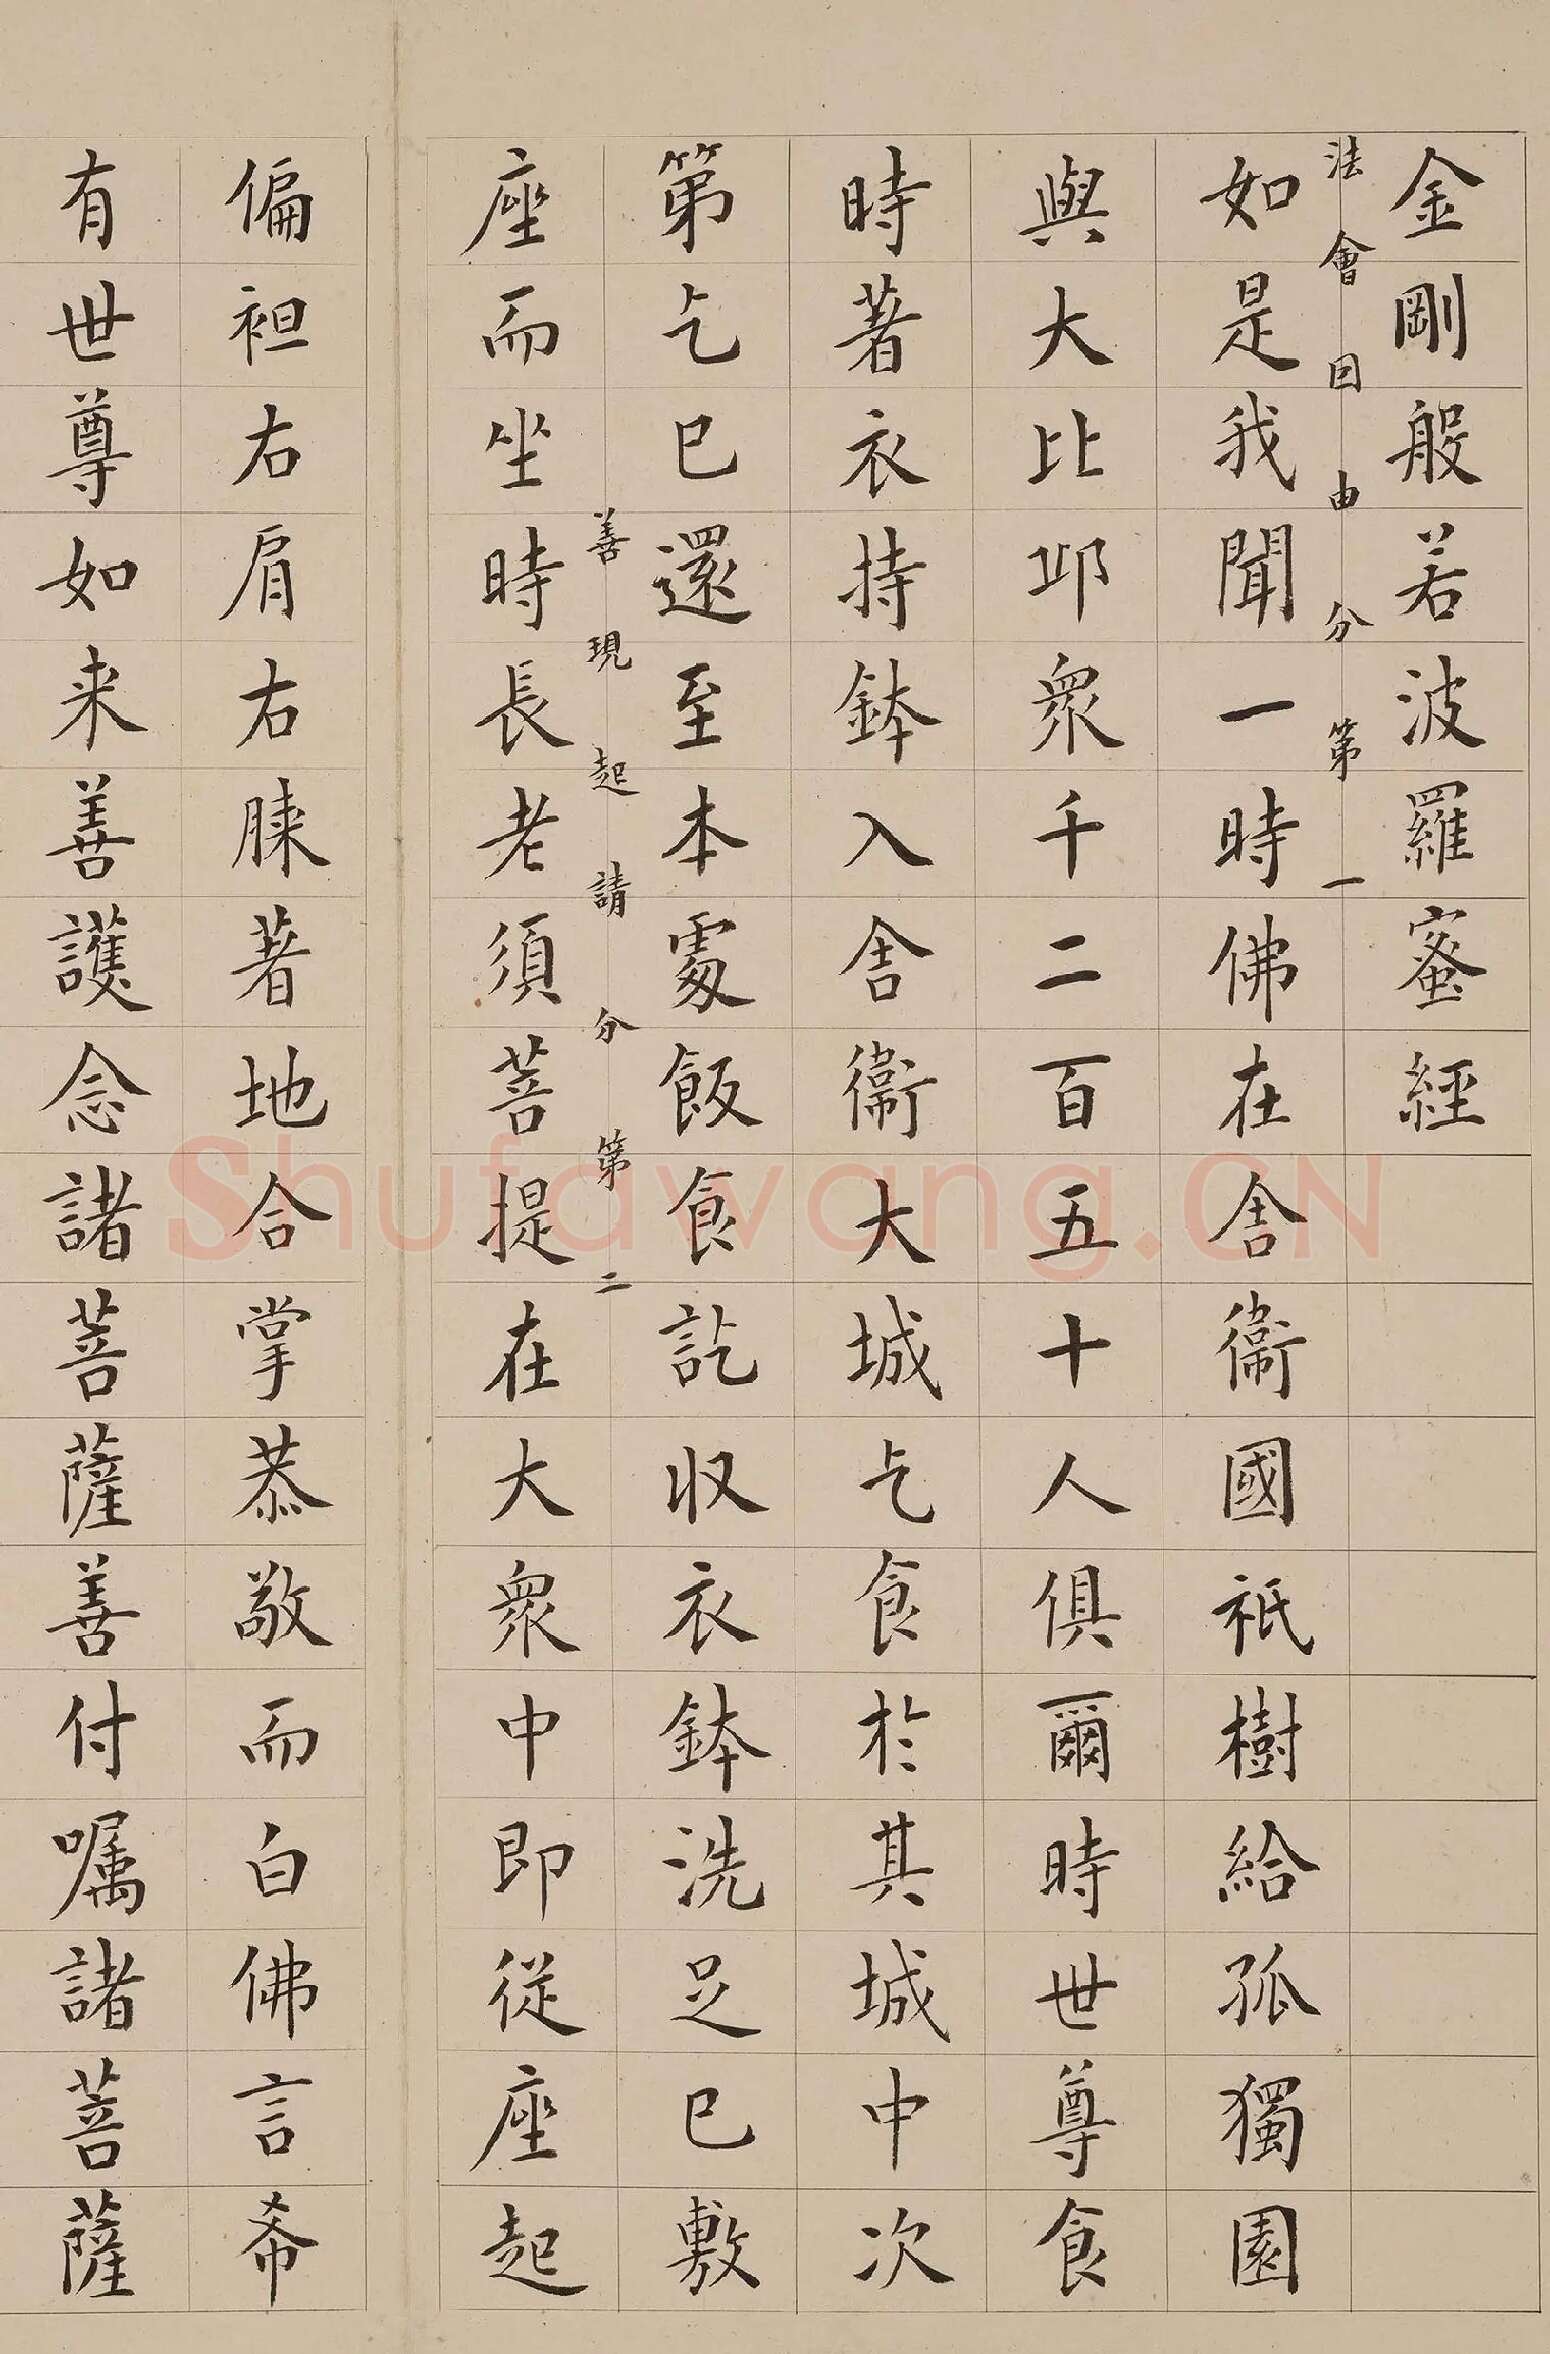 金剛般若波羅蜜經
法會因由分第一
如是我聞一時佛在舍衛國祇樹給孤獨園
與大比邱衆千二百五十人俱爾時世尊食
時著衣持鉢入舍衛大城乞食於其城中次
第乞已還至本處飯食訖收衣鉢洗足已敷
善現起請分第二
座而坐時長老須菩提在大衆中即從座起
偏袒右肩右膝著地合掌恭敬而白佛言希
有世尊如来善護念諸菩薩善付嘱諸菩薩
Shufawang.CN